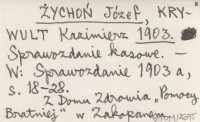 ŻYCHOŃ Józef, KRY-
WULT Kazimierz 1903.
Sprawozdanie kasowe. –
W: Sprawozdanie 1903 a,
s. 18-28.
Z Domu Zdrowia „Pomocy
Bratniej" w Zakopanem